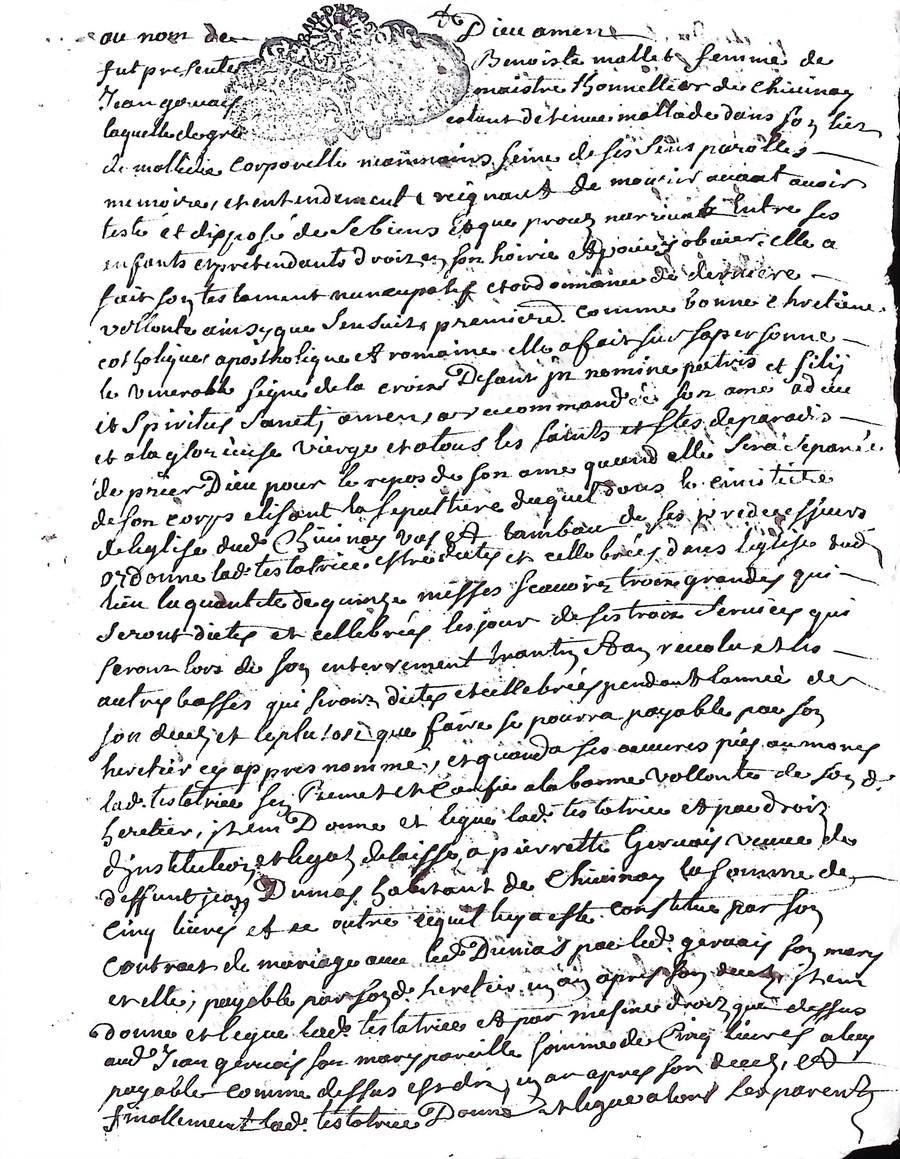 au nom de Dieu amen
fut presente Benoiste mallet femme de
Jean gervais maistre thonnellier de Chivinay
laquelle de gre estant detenue mallade dans son lict
de malladie corporelle neanmoins seine de ses sens parolles
memoire, et entendement creignant de mourir avant avoir
testé et disposé de se biens et que procez narrivat entre ses
enfants et pretendants droitz en son hoirie et pour y obvier elle a
fait son testament nuncupatif et ordonnance de derniere
vollonté ainsy que sensuit, premierem. comme bonne chretiene
catholique apostholique et romaine elle a fait sur sa personne
le venerable signe de la croix Disant jn nomine patris et filij
et Spiritus Sanct, amen, a recommandée son ame a dieu
et a la glorieuse vierge et a tous les saints et stes de paradis
de prier Dieu pour le repos de son ame quand elle sera separée
de son corps elisant la sepulture duquel dans le cimitiere
de leglise dud. Chivinay vas et tombeau de ses predecesseurs
ordonne lad. testatrice estre dites et cellebrées dans leglise dud
lieu la quantite de quinze messes scavoir trois grandes qui
seront dites et cellebrées les jour de ses trois services qui
seront lors de son enterrement trantin et an revolu et les
autres basses qui seront dites et cellebrées pendant lannée de
son decedz et le plus tost que faire se pourra payable par son
heretier cy appres nomme, et quand a ses aeuvres pies aumones
lad. testatrice sen remet et confie a la bonne vollonte de son d.
heretier, jtem Donne et legue lad. testatrice et par droit
dinstitution et legat delaisse, a pierrette Gervais veuve de
deffunt jean Dumas habitant de Chivinay la somme de
Cinq livres et ce outre ce quil luy a este constitue par son
contrat de mariage avec led. Dumas par led. gervais son mary
et elle; payable par sond. heretier un an apres son decedz, jtem
donne et legue lad. testatrice et par mesme droit que dessus
aud. Jean gervais son mary pareille somme de Cinq livres a luy
payable comme dessus est dit, un an apres son decedz, et
finallement lad. testatrice Donne et legue a tous les parentz